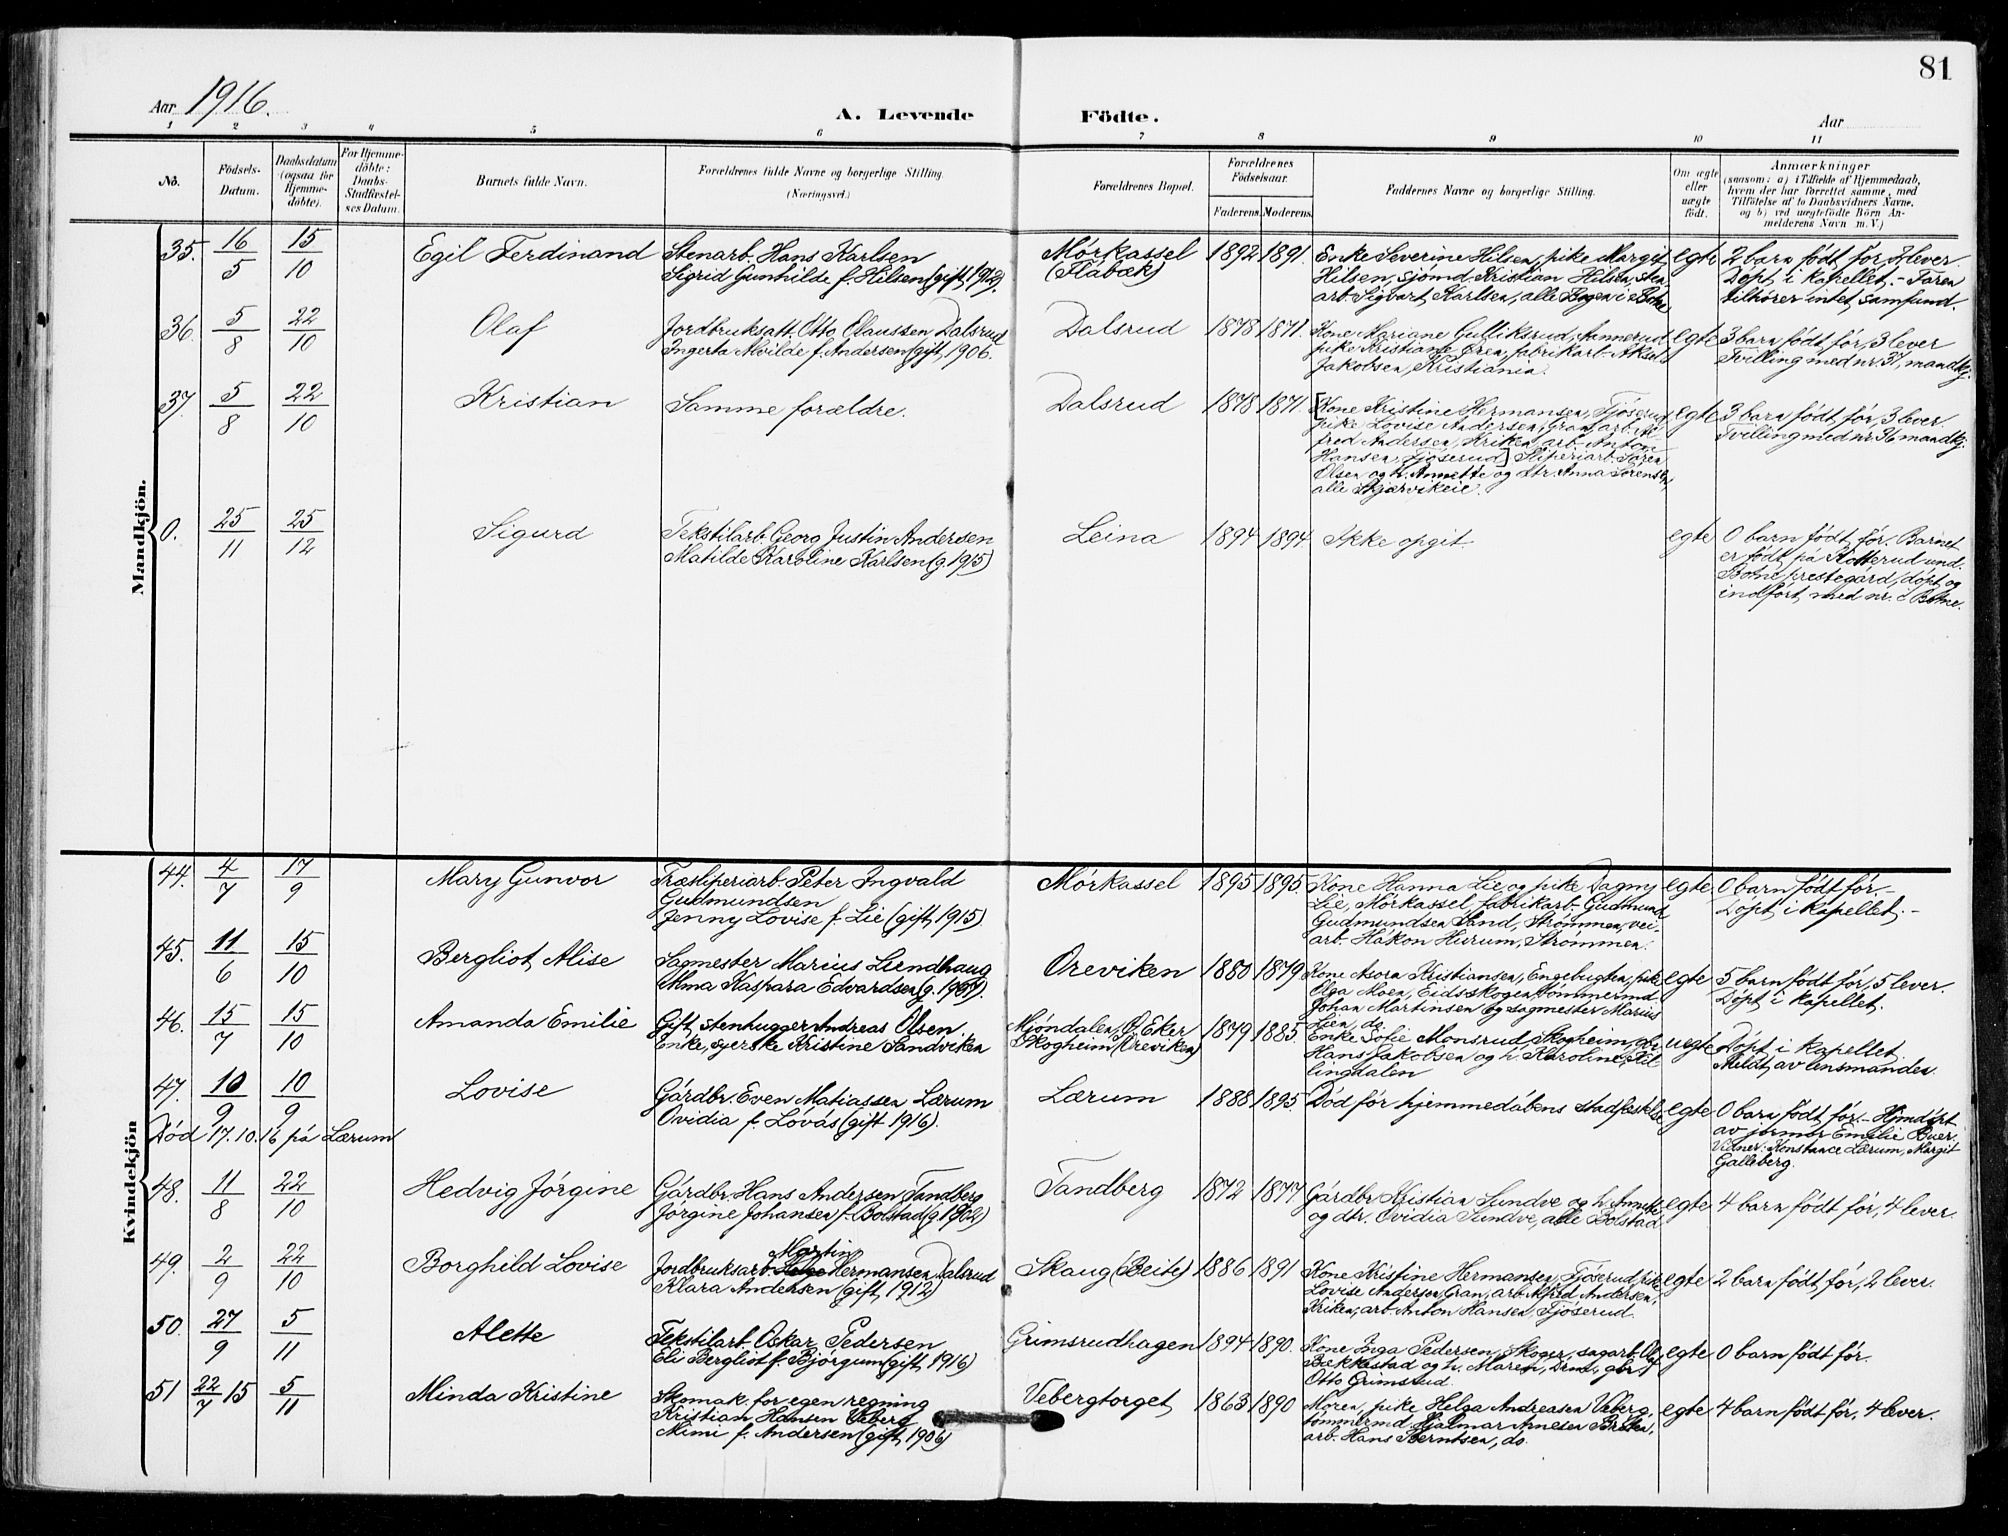 81
Aar 1916.
A. Levende Födte.
Aar
1 2 3 4 5 6 7 8 9 10 11
No.
Födsels-
Datum.
Daabsdatum
(ogsaa for
Hjemme-
döbte).
For Hjemme-
döbte:
Daabs-
Stadfæstel-
ses Datum.
Barnets fulde Navn.
Forældrenes fulde Navne og borgerlige Stilling.
(Næringsvei.)
Forældrenes Bopæl.
Forældrenes
Födselsaar.
Faderens. Moderens.
Faddernes Navne og borgerlige Stilling.
Om ægte
eller
uægte
födt.
Anmærkninger
(saasom: a) i Tilfælde af Hjemmedaab,
hvem der har forrettet samme, med
Tilföielse af to Daabsvidners Navne,
og b) ved uægtefödte Börn An-
melderens Navn m. V.)
Mandkjön.
35. 16/5 15/10 Egil Ferdinand
Stenarb. Hans Karlsen
Sigrid Gunhilde f. Hilsen (gift 1912).
Mörkassel
(Flåbæk)
1892 1891.
Enke Severine Hilsen, pike Margit
Hilsen, sjömd. Kristian Hilsen, sten
arb. Sigvart Karlsen, alle Bogen i Botne
egte
2 barn födt för, 2 lever.
Döpt i kapellet. - Faren
tilhörer intet samfund.
36. 5/8 22/10 Olaf
Jordbruksarb. Otto Olaussen Dalsrud
Ingerta Alvilde f. Andersen (gift 1906.
Dalsrud
1878 1871.
Kone Mariane Gulliksrud, Annerud
pike Kristiane Gren, fabrikarb.
Jakobsen, Kristiania.
egte
3 barn födt för, 3 lever
Tvilling med nr. 37, mandkj.
37. 5/8 22/10 Kristian
Samme forældre.
Dalsrud
1878 1871.
[Kone Kristine Hermansen, Tjöserud,
pike Lovise Andersen, Gran, arb. Al-
fred Andersen, Kriken, arb. Anton
Hansen, Tjöserud] Sliperiarb. Sören
Olsen og h. Annette og dtr. Anna Sörensen,
alle Skjærvikeie.
egte
3 barn födt för, 3 lever.
Tvilling med nr. 36 mandkj.
0. 25/11 25/12 Sigurd
Tekstilarb. Georg Justin Andersen
Matilde Karoline Karlsen (g. 1915)
Leina
1894 1894
Ikke opgit.
egte
0 barn födt för. Barnet
er födt på Kotterud und.
Botne prestegård, döpt og
indfört med nr. i Botne.
Kvindekjön
44. 4/7 17/9 Mary Gunvor
Træsliperiarb. Peter Ingvald
Gudmundsen
Jenny Lovise f. Lie (gift 1915).
Mörkassel
1895 1895.
Kone Hanna Lie og pike Dagny
Lie, Mörkassel, fabrikarb. Gudmund
Gudmundsen Sand, Strömmen, vei-
arb. Håkon Hurum, Strömmen.
egte
0 barn födt för. -
Döpt i kapellet. -
45. 11/6 15/10 Bergliot Alise
Sagmester Marius Lundhaug
Alma Kaspara Edvardsen (g. 1907).
Oreviken
1880 1879
Kone Asora Kristiansen, Engebugten, pike
Olga Moen, Eidsskogen, tömmermd.
Johan Martinsen og sagmester Marius
Lien, do.
egte
5 barn födt för, 5 lever.
Döpt i kapellet.
46. 15/7 15/10 Amanda Emilie
Gift stenhugger Andreas Olsen.
Enke, syerske Kristine Sandviken
Mjöndalen, Ö. Eker
Skogheim (Oreviken)
1879 1885.
Enke Sofie Monsrud, Skogheim,
Hans Jakobsen og h. Karoline, Kil-
lingdalen
uegte
Döpt i kapellet.
Meldt av lensmanden.
47. 10/9 10/9 Lovise
Gårdbr. Even Matiassen Lærum
Ovidia f. Lövås (gift 1916).
Lærum
1888 1895.
Död för hjemmedåbens stadfæstelse
egte
0 barn födt för. - Hjmdöpt
av jormor Emilie Buer.
Vidner: Konstance Lærum, Margit
Galleberg.
Död 17.10.16 på Lærum
48. 11/8 22/10 Hedvig Jörgine
Gårdbr. Hans Andersen Tandberg
Jörgine Johansen f. Bolstad (g. 1902)
Tandberg
1872 1877
Gårdbr. Kristian Sundve og h. Annette
og dtr. Ovidia Sundve, alle Bolstad
egte
4 barn födt för, 4 lever.
49. 2/9 22/10 Borghild Lovise
Martin
Jordbruksarb. Hermansen Dalsrud
Klara Andersen (gift 1912)
Skaug (Beite)
1886 1891
Kone Kristine Hermansen, Tjöserud, pike
Lovise Andersen, Gran, arb. Alfred Andersen,
Kriken, arb. Anton Hansen, Tjöserud.
egte
2 barn födt för, 2 lever.
50. 27/9 5/11 Alette
Tekstilarb. Oskar Pedersen
Eli Bergliot f. Björgum (gift 1916)
Grimsrudhagen
1894 1890.
Kone Inga Pedersen, Skoger, sagarb. Olaf
Bækkestad og h. Maren,
Otto Grimsrud.
egte
0 barn födt för.
51 22/7 15 5/11 Minda Kristine
Skomak. for egen regning
Kristian Hansen Veberg
Mimi f. Andersen (gift 1906)
Vebergtorget
1863 1890
Moren, pike Helga Andreasen Veberg,
tömmermd. Hjalmar Arnesen
arb. Hans Berntsen, do.
egte
4 barn födt för, 4 lever.